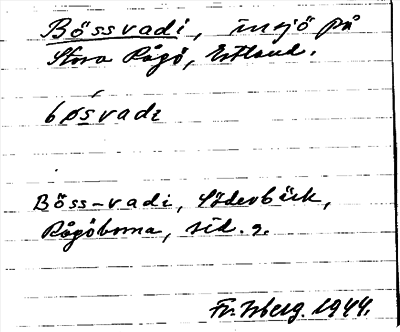 Bössvadi, insjö på
Stora Rågö, Estland.
bǿsvadi
Böss-vadi, Söderbäck,
Rågöborna, sid. 9.
Fr. Isberg. 1944.